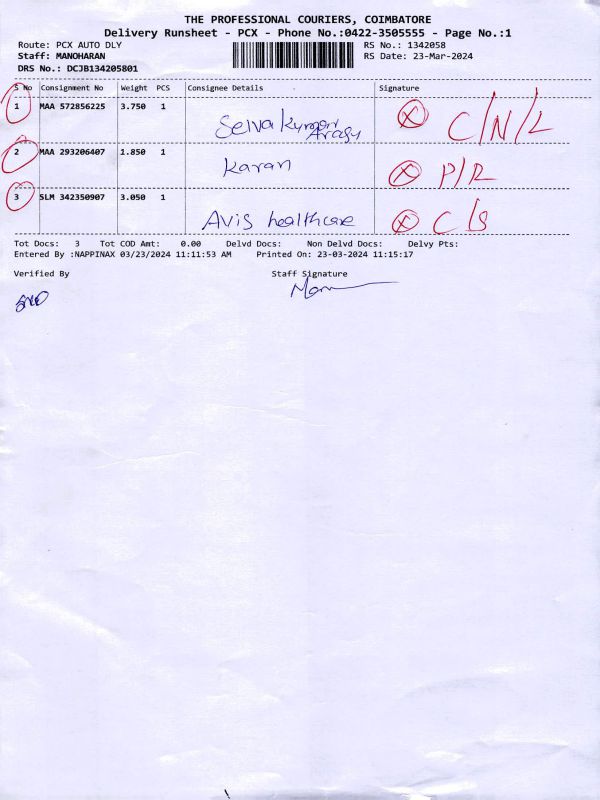 THE PROFESSIONAL COURIERS, COIMBATORE
Delivery Runsheet - PCX - Phone No.:0422-3505555 - Page No.:1
Route: PCX AUTO DLY RS No.: 1342058
Staff: MANOHARAN RS Date: 23-Mar-2024
DRS No.: DCJB134205801
S No Consignment No Weight PCS Consignee Details Signature
1 MAA 572856225 3.750 1 Selva Kumar C/N/L
Arasu
2 MAA 293206407 1.850 1 Karan P/R
3 SLM 342350907 3.050 1 Avis healthcare C/S
Tot Docs: 3 Tot COD Amt: 0.00 Delvd Docs: Non Delvd Docs: Delvy Pts:
Entered By :NAPPINAX 03/23/2024 11:11:53 AM Printed On: 23-03-2024 11:15:17
Verified By Staff Signature